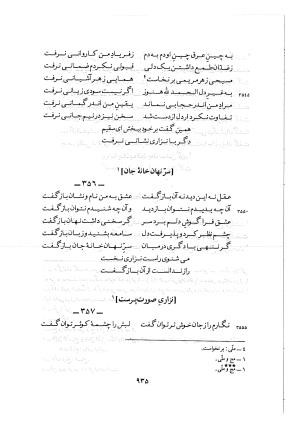 به چینِ عرق چین او دم به دم ز فریادِ من کاروانی نرفت
زغدان طمع داشتن یک دلی قبولی نکردم ضمانی نرفت
مسیحی ز هر مریمی برنخاست⁴ همایی ز هر آشیانی نرفت
۲۸۴۵ به غیر دل الحمد لله هنوز اگر نیست سودی زیانی نرفت
مرادِ من اندر حجابی نماند یقینِ من اندر گمانی نرفت
تفاوت نکرد ار دل از دست شد سخن نیز در نیم جانی نرفت
همین گفت بر خود ببخش ای مقیم
دگر با نزاری نشانی نرفت
[سرّ نهان خانهٔ جان]۱
ــ ۳۵۶ ــ
عقل نه این دید نه آن بازگفت عشق به من نام و نشان بازگفت
۲۸۵۰ آن چه بدیدم نتوان بازدید و آن چه شنیدم نتوان بازگفت
عشق فرا گوشِ دلم برد سر گر سخنی داشت نهان بازگفت
چشم نظر کرد و پذیرفت دل سامعه بشنید و زبان بازگفت
گر تنهی با دگری در میان سرّ نهان خانهٔ جان بازگفت
می شنوی راست نزاری نخست
راز نداست از آن بازگفت
[نزاری صورت پرست]۱
ــ ۳۵۷ ــ
۲۸۵۵ نگارم را ز جان خوش تر توان گفت لبش را چشمهٔ کوثر توان گفت
۴ ــ ملّی: برنخواست.
۱ ــ مج و ملّی.
***
۱ ــ مج و ملّی.
۹۳۵